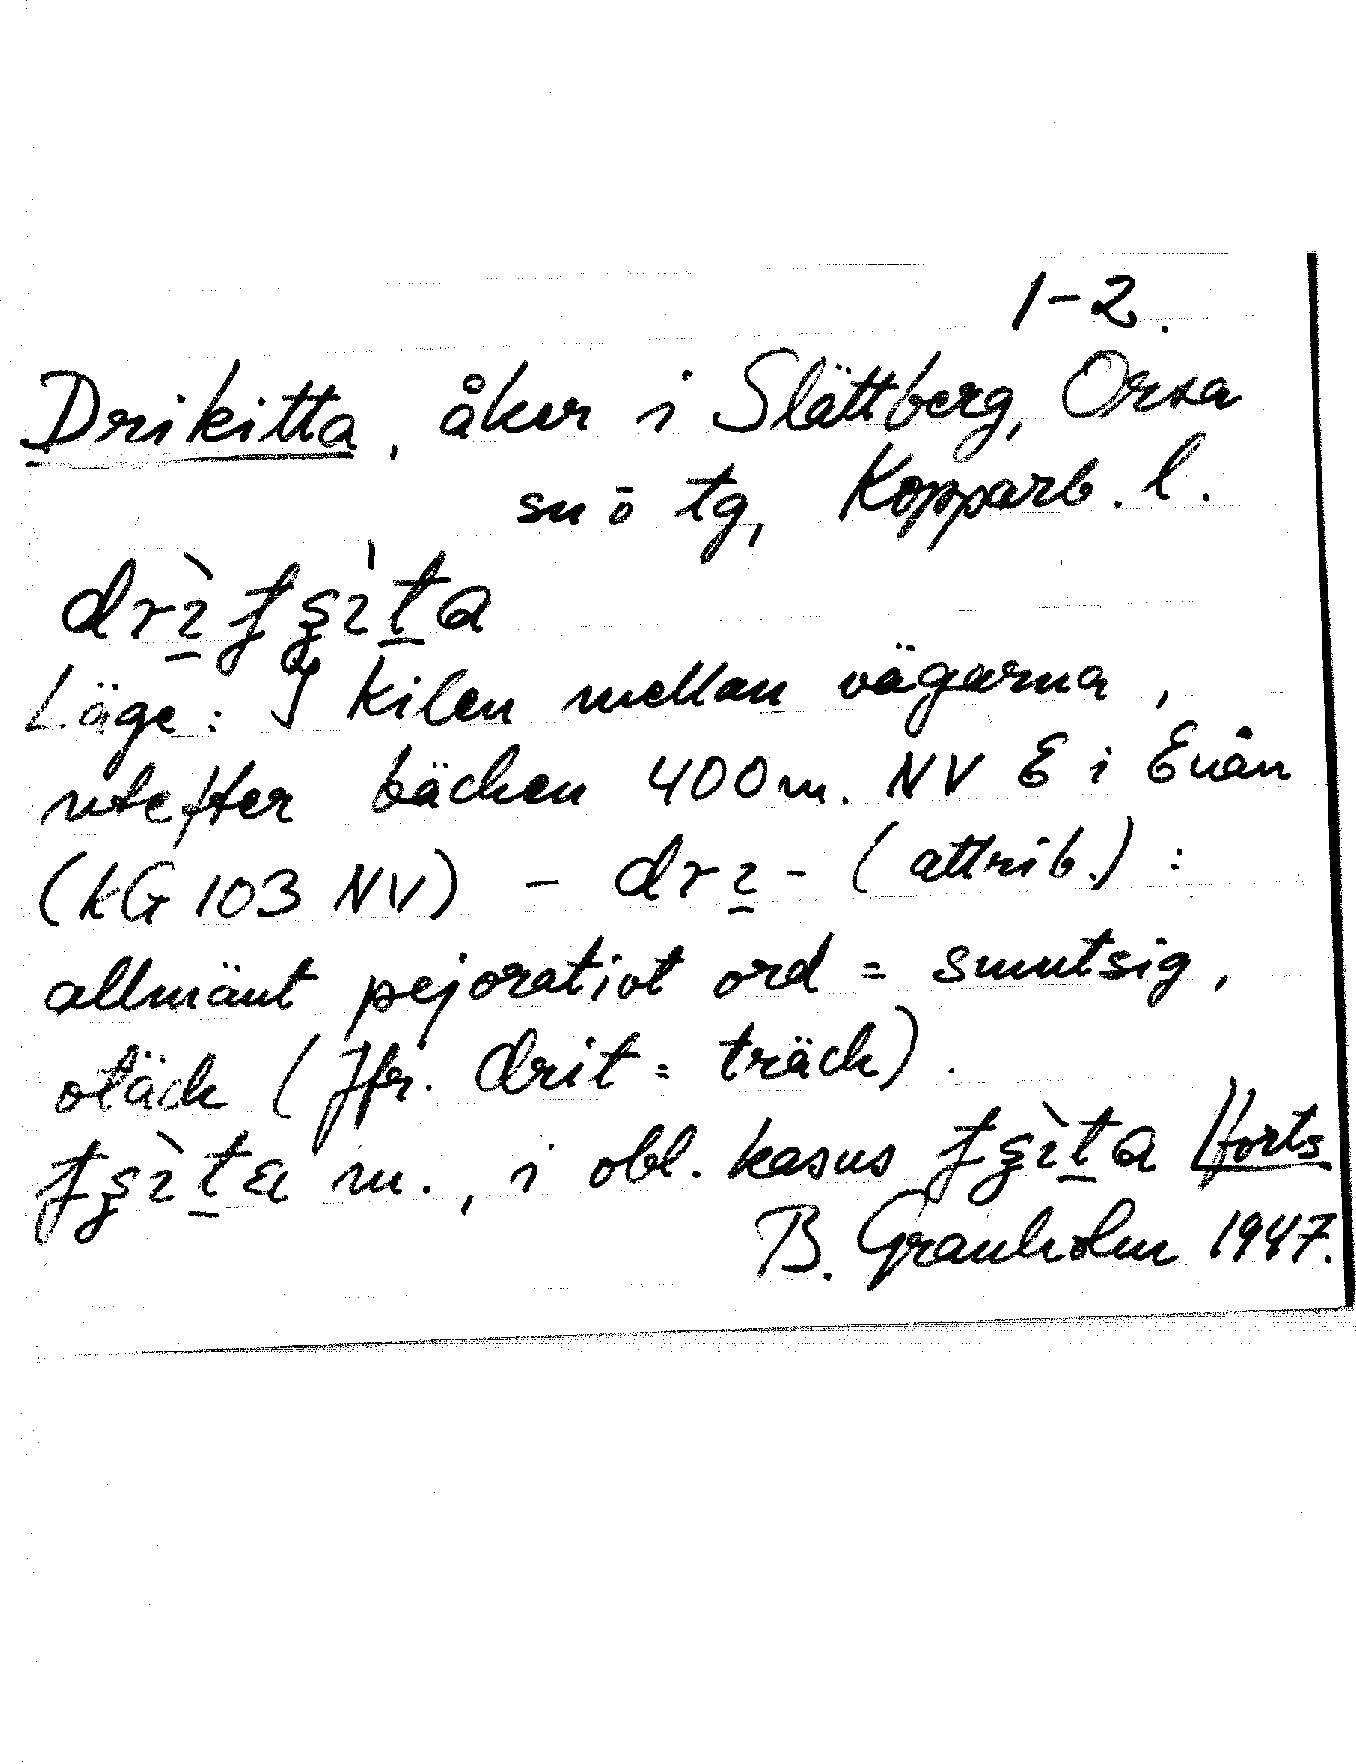 1-2.
Drikitta, åker i Slättberg, Orsa
sn ō tg, Kopparb. l.
Läge: I kilen mellan vägarna,
utefter bäcken 400m. NV E i Enån
(kG 103 NV) - drɪ̱- (attrib.) :
allmänt pejorativt ord = smutsig,
otäck (Jfr. drit = träck).
m., i obl. kasus forts
B. Granholm 1947.